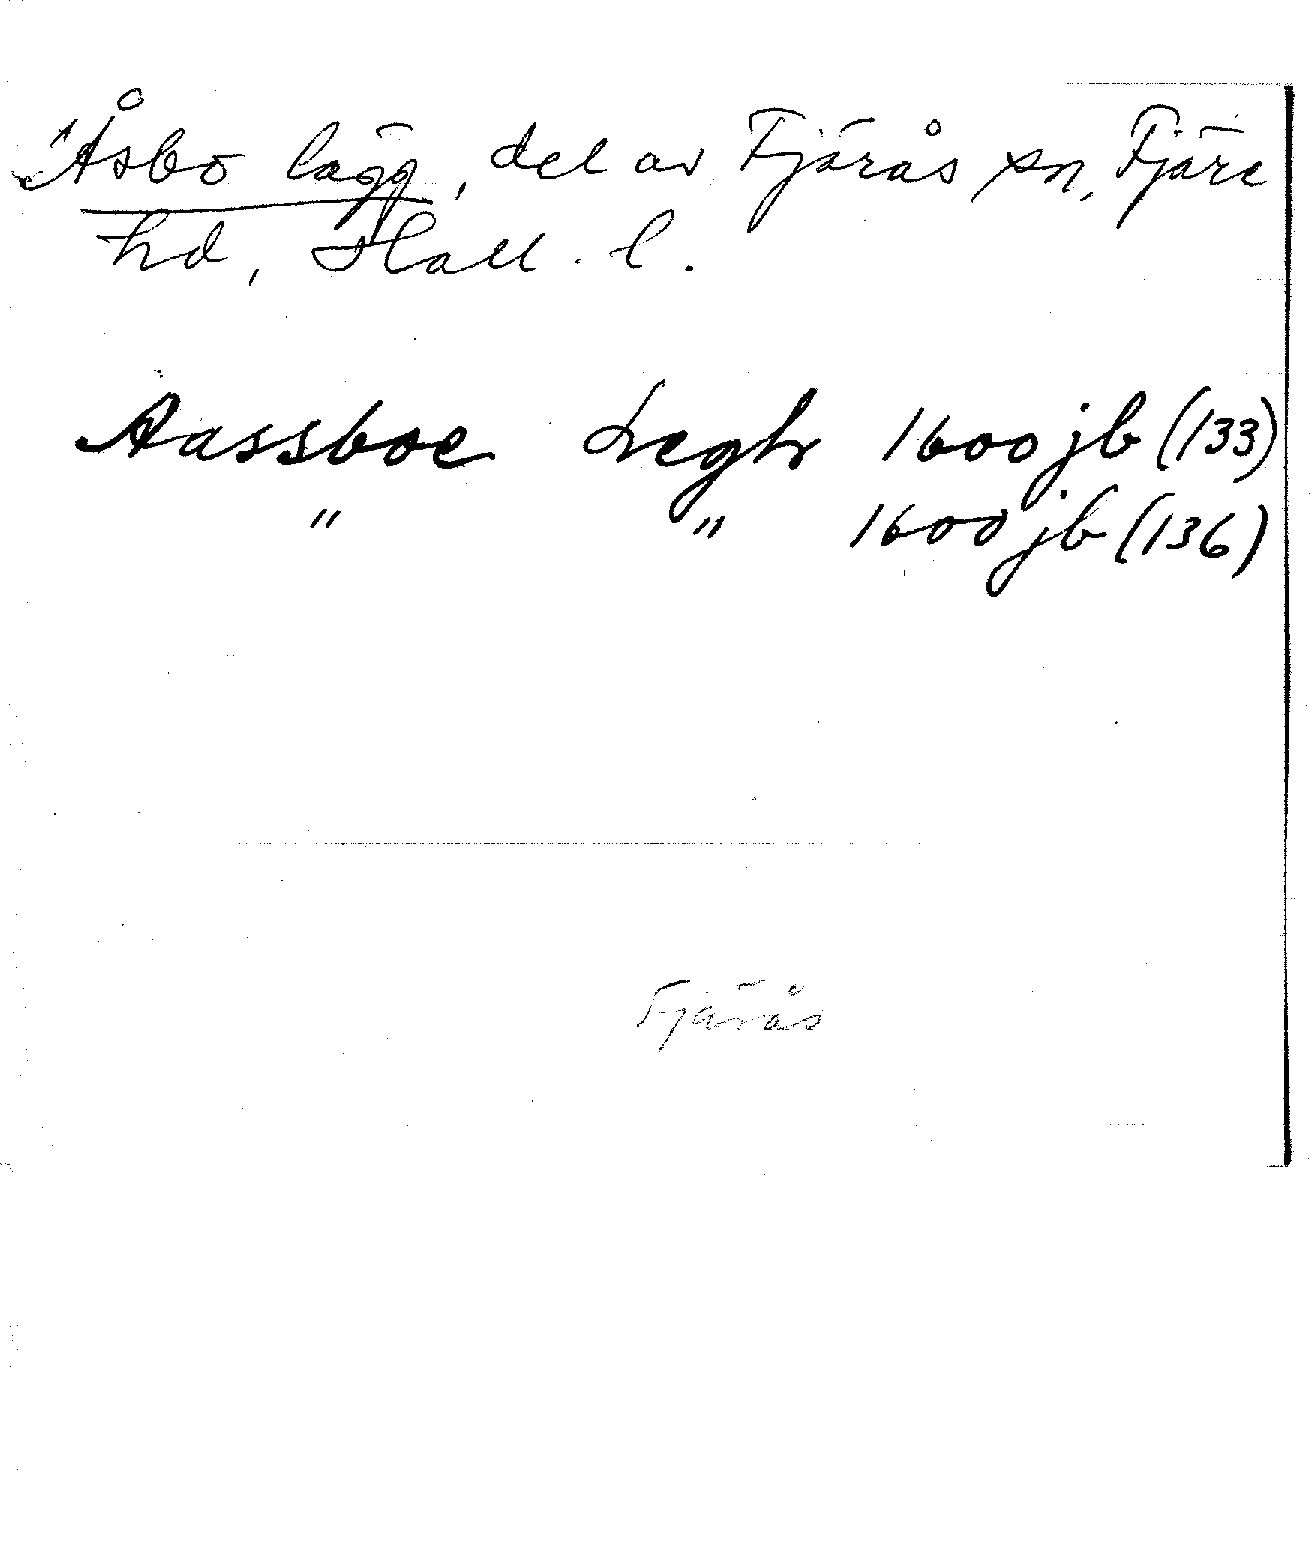 Åsbo lägg, del av Fjärås sn, Fjäre
hd, Hall. l.
Aassboe Legh 1600 jb (133)
" " 1600 jb (136)
Fjärås